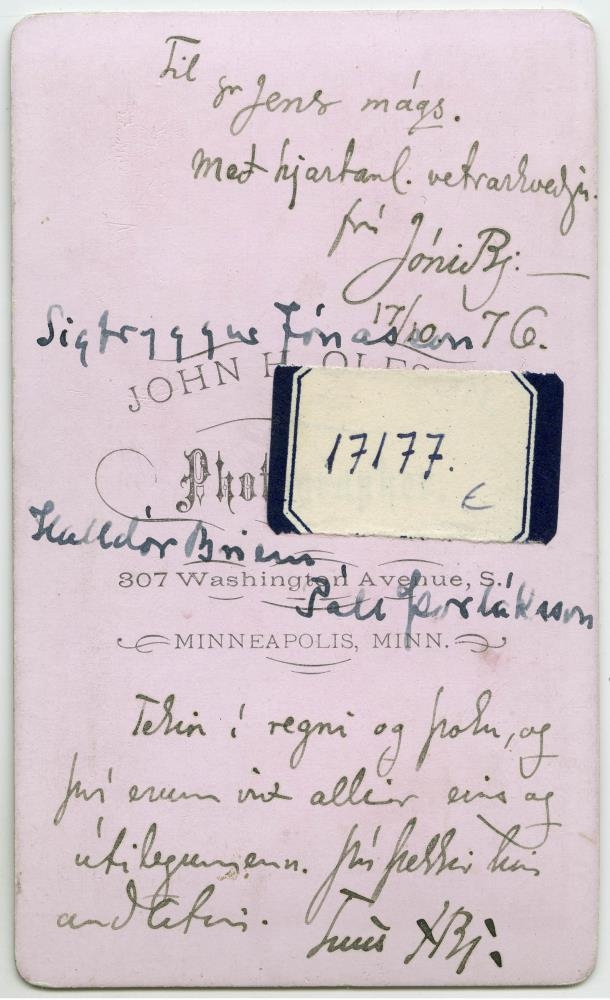 Til
hr Jens mágs.
með hjartanl. vetrarkveðju.
frá
Jóni Bj:
17/10 76.
Sigtryggur Jónasson
JOHN H. OLES
Phot
17177.
Halldór Briem
307 Washington Avenue, S.
Páll Þorláksson
MINNEAPOLIS, MINN.
Tekin í regni og þoku, og
því erum við allir eins og
útilegumenn. Þú þekkir hin
andlitin.
JBj.